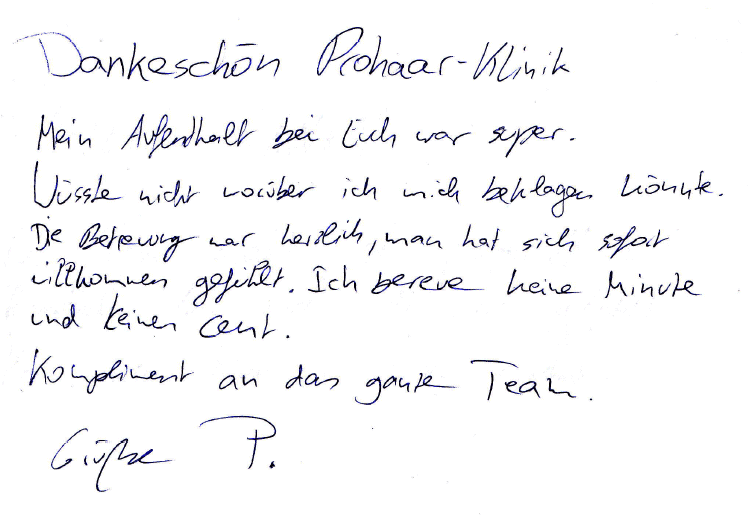 Dankeschön Prohaar-Klinik
Mein Aufendhalt bei Euch war super.
Wüsste nicht worüber ich mich beklagen könnte.
Die Betreuung war herzlich, man hat sich sofort
willkommen gefühlt. Ich bereue keine Minute
und keinen Cent.
Kompliment an das ganze Team.
Grüße P.